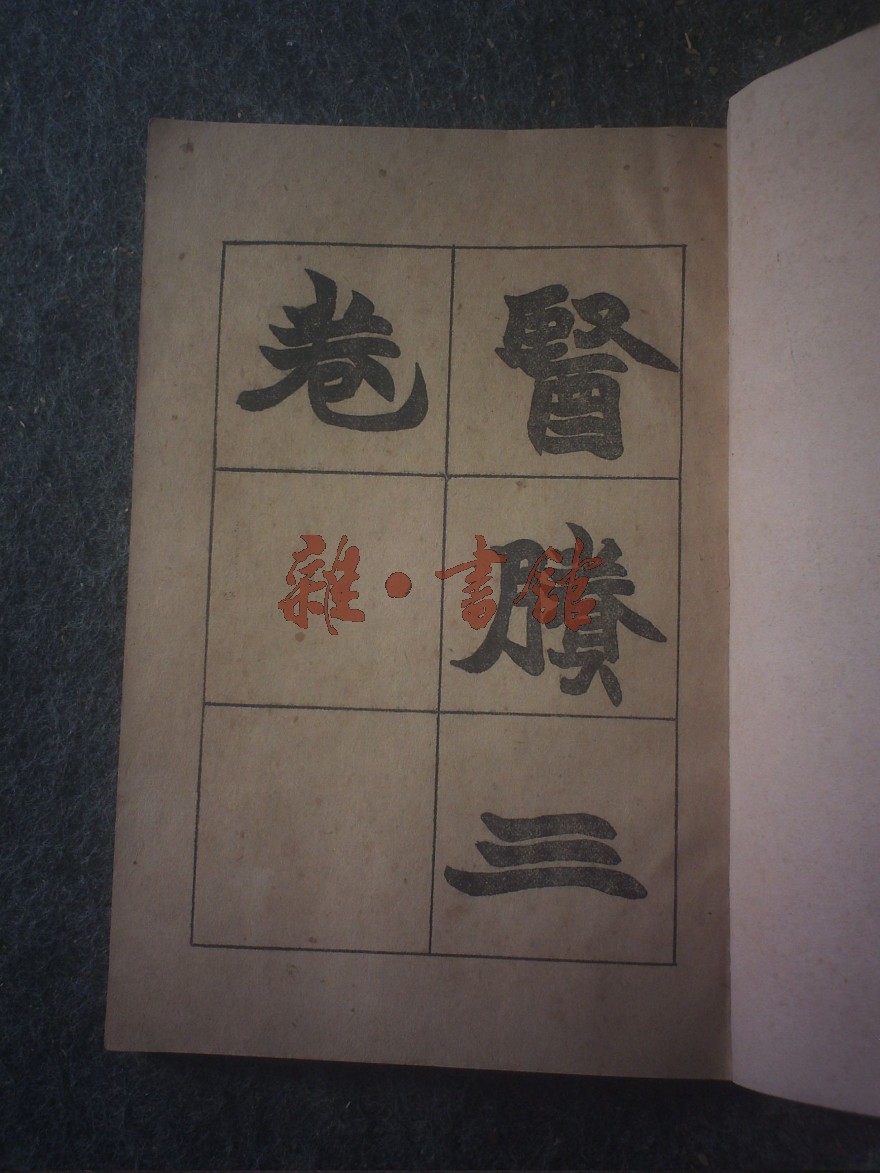 醫賸三
卷
雜·書館